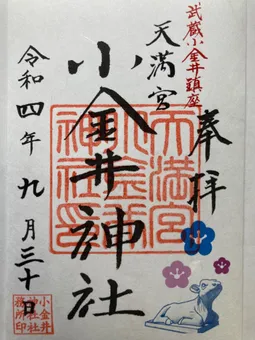 武蔵小金井鎮座
奉拝
天満宮
小金井神社
令和四年九月三十日
天満宮
小金井
神社印
小金井
神社社
務所印